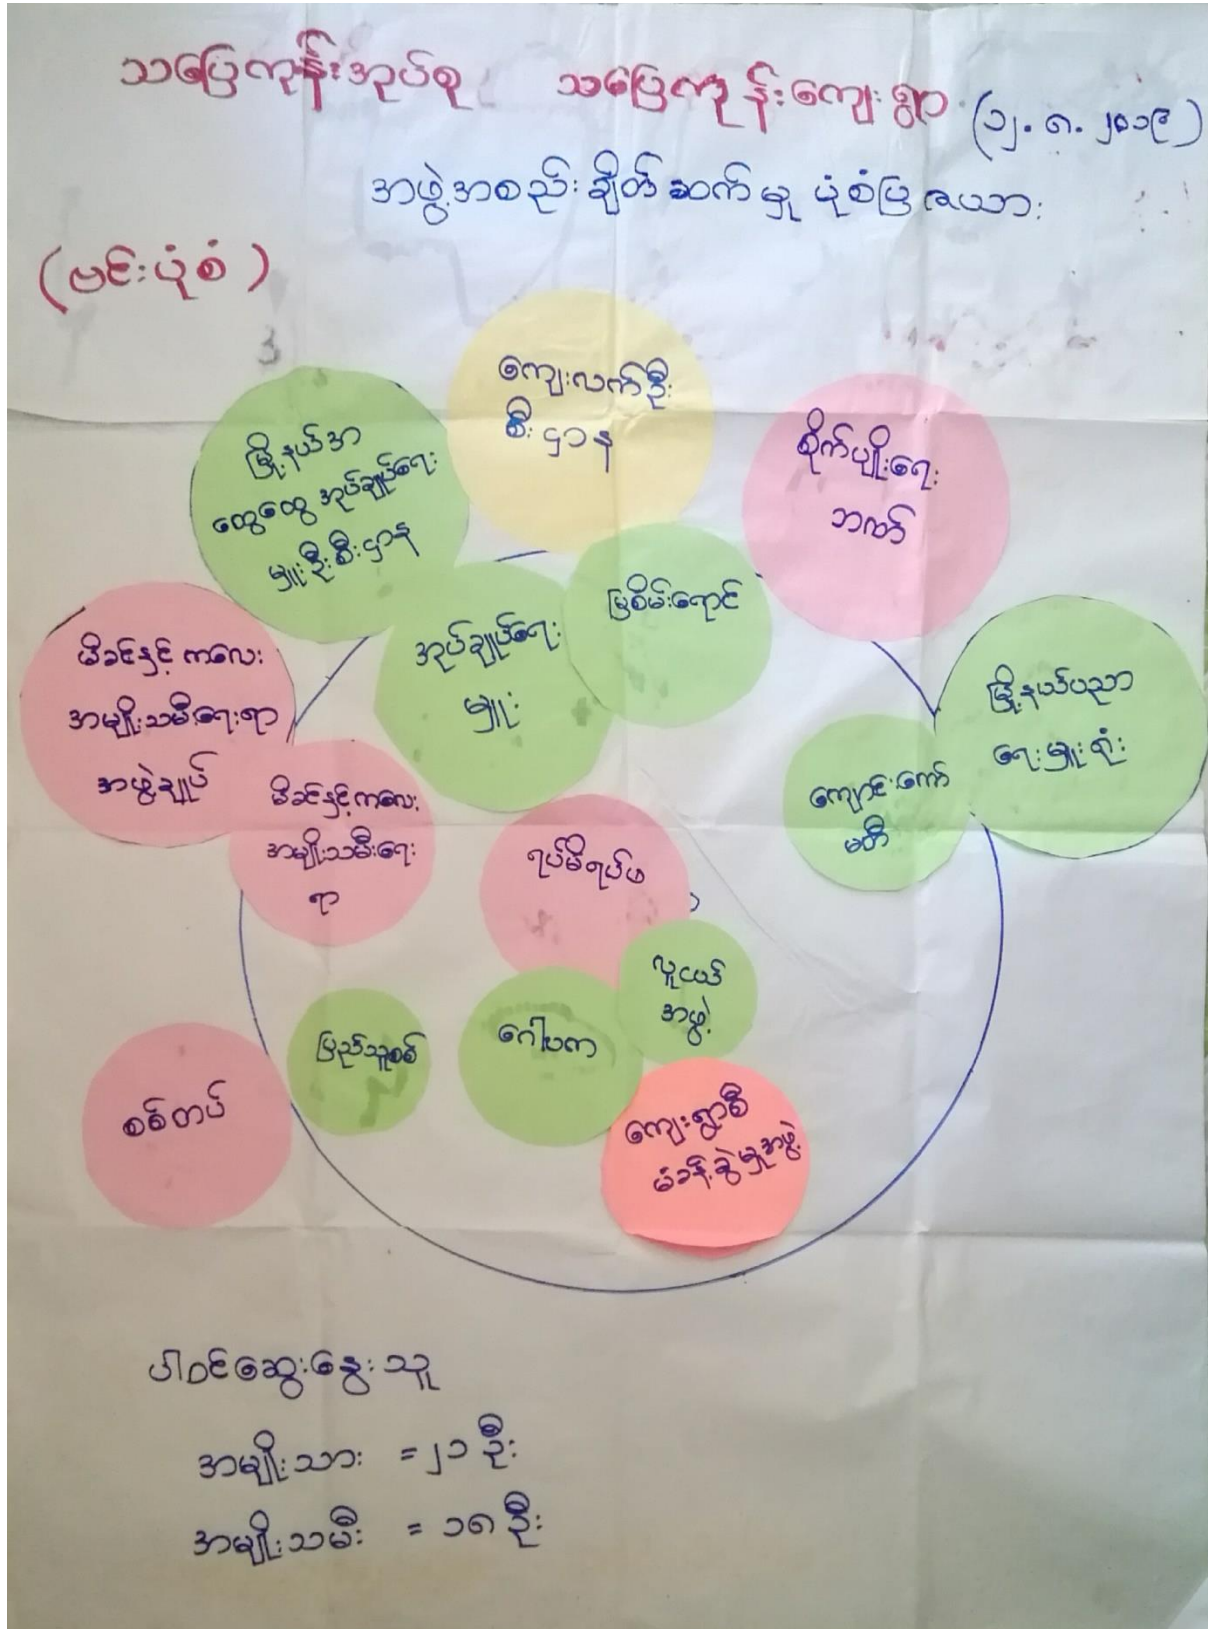 သပြေကုန်းအုပ်စု သပြေကုန်းကျေးရွာ (၁၂.၈.၂၀၁၉)
အဖွဲ့အစည်းချိတ်ဆက်မှု ပုံစံပြဇယား
(ဗင်းပုံစံ)
ကျေးလက်ဦး
စီးဌာန
မြို့နယ်အ
ထွေထွေအုပ်ချုပ်ရေး
မှူးဦးစီးဌာန
စိုက်ပျိုးရေး
ဘဏ်
မြစိမ်းရောင်
အုပ်ချုပ်ရေး
မှူး
မိခင်နှင့်ကလေး
အမျိုးသမီးရေးရာ
အဖွဲ့ချုပ်
မြို့နယ်ပညာ
ရေးမှူးရုံး
ကျောင်းကော်
မတီ
မိခင်နှင့်ကလေး
အမျိုးသမီးရေး
ရာ
ရပ်မိရပ်ဖ
လူငယ်
အဖွဲ့
ပြည်သူစစ်
ဂေါပက
စစ်တပ်
ကျေးရွာစီ
မံခန့်ခွဲမှုအဖွဲ့
ပါဝင်ဆွေးနွေးသူ
အမျိုးသား = ၂၁ ဦး
အမျိုးသမီး = ၁၈ ဦး